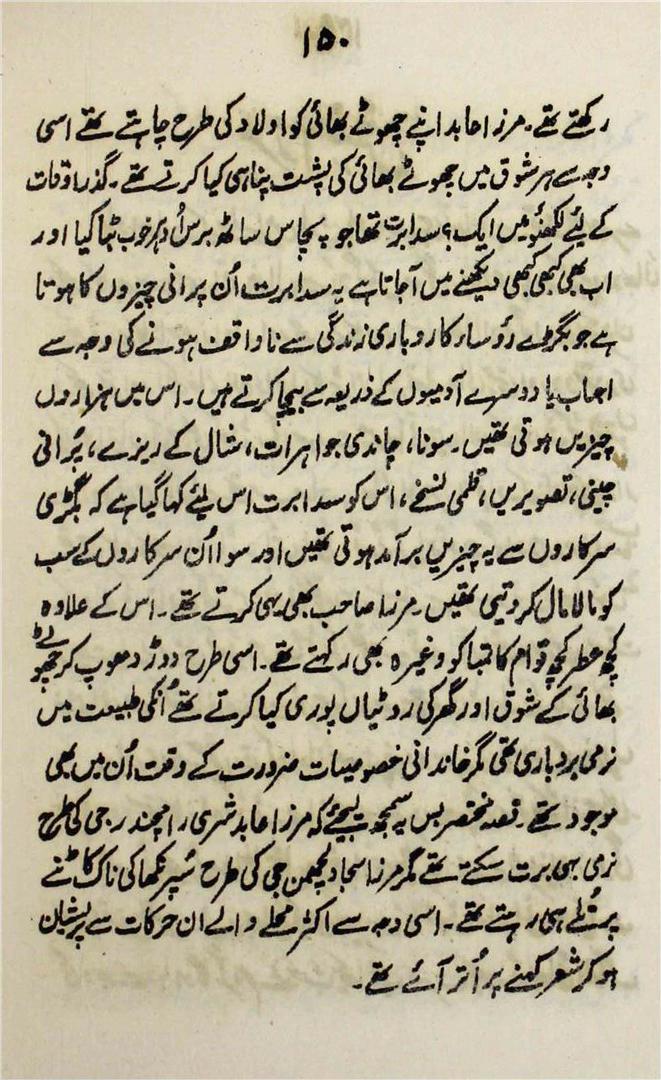 ۱۵۰
رکھتے تھے۔ مرزا عابد اپنے چھوٹے بھائی کو اولاد کی طرح چاہتے تھے اسی
وجہ سے ہر شوق میں چھوٹے بھائی کی پشت پناہی کیا کرتے تھے۔ گذر اوقات
کے لئے لکھنؤ میں ایک ؟ سدابرت تھا جو پچاس ساٹھ برس اُدہر خوب بٹا کیا اور
اب بھی کبھی کبھی دیکھنے میں آجاتا ہے یہ سدابرت اُن پرانی چیزوں کا ہوتا
ہے جو بگڑے رؤسا، کاروباری زندگی سے ناواقف ہونے کی وجہ سے
احباب یا دوسرے آدمیوں کے ذریعہ سے بیچا کرتے ہیں۔ اس میں ہزاروں
چیزیں ہوتی تھیں۔ سونا، چاندی جواہرات، شال کے ریزے، پُرانی
چینی، تصویریں، قلمی نسخے، اس کو سدابرت اس لئے کہا گیا ہے کہ بگڑی
سرکاروں سے یہ چیزیں برآمد ہوتی تھیں اور سوا اُن سرکاروں کے سب
کو مالا مال کر دیتی تھیں۔ مرزا صاحب بھی یہی کرتے تھے۔ اس کے علاوہ
کچھ عطر کچھ قوام کا تمباکو وغیرہ بھی رکھتے تھے۔ اسی طرح دوڑ دھوپ کر چھوٹے
بھائی کے شوق اور گھر کی روٹیاں پوری کیا کرتے تھے اُنکی طبیعت میں
نرمی بردباری تھی مگر خاندانی خصوصیات ضرورت کے وقت اُن میں بھی
موجود تھے۔ قصہ مختصر بس یہ سمجھ لیجئے کہ مرزا عابد شری رامچندر جی کی طرح
نرمی ہی برت سکتے تھے مگر مرزا سجاد لچھمن جی کی طرح سُپر نکھا کی ناک کاٹنے
پر تُلے ہی رہتے تھے۔ اسی وجہ سے اکثر محلے والے ان حرکات سے پریشان
ہو کر شعر کہنے پر اُتر آئے تھے۔